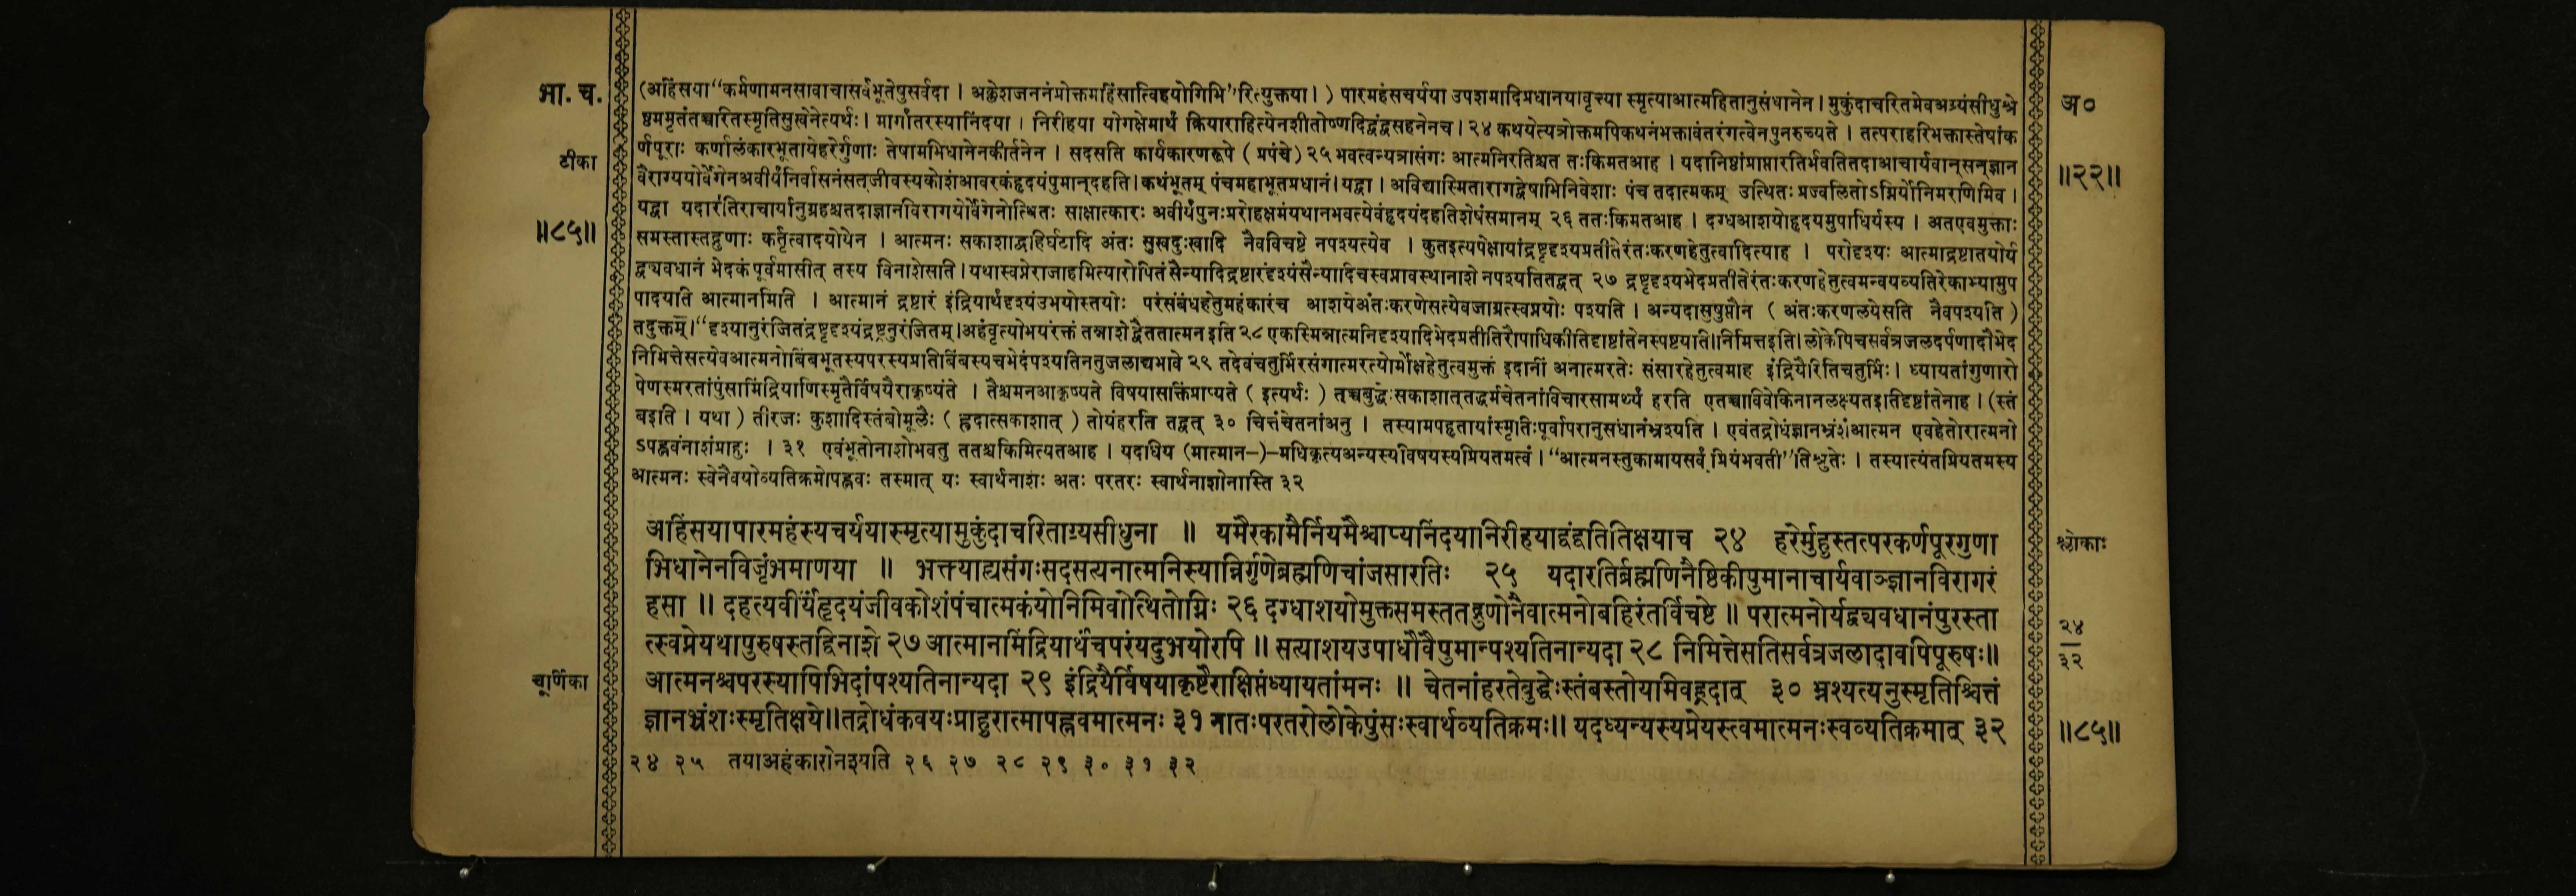 भा. च.
टीका
॥८५॥
चूर्णिका
(अहिंसया“कर्मणामनसावाचासर्वभूतेषुसर्वदा । अक्लेशजननंप्रोक्तमहिंसात्विहयोगिभि”रित्युक्तया। ) पारमहंसचर्यया उपशमादिप्रधानयावृत्त्या स्मृत्याआत्महितानुसंधानेन । मुकुंदाचरितमेवअग्र्यंसीधुश्रे
ष्ठममृतंतच्चरितस्मृतिसुखेनेत्यर्थः। मार्गांतरस्यानिंदया । निरीहया योगक्षेमार्थं क्रियाराहित्येनशीतोष्णदिद्वंद्वसहनेनच । २४ कथयेत्यत्रोक्तमपिकथनंभक्तावंतरंगत्वेनपुनरुच्यते । तत्पराहरिभक्तास्तेषांक
र्णपूराः कर्णालंकारभूतायेहरेर्गुणाः तेषामभिधानेनकीर्तनेन । सदसति कार्यकारणरूपे ( प्रपंचे ) २५ भवत्वन्यत्रासंगः आत्मनिरतिश्चत तःकिमतआह । यदानिष्ठांप्राप्तारतिर्भवतितदाआचार्यवान्सन्ज्ञान
वैराग्ययोर्वेगेनअवीर्यंनिर्वासनंसत्जीवस्यकोशंआवरकंहृदयंपुमान्दहति। कथंभूतम् पंचमहाभूतप्रधानं। यद्वा । अविद्यास्मितारागद्वेषाभिनिवेशाः पंच तदात्मकम् उत्थितः प्रज्वलितोऽग्निर्योनिमरणिमिव ।
यद्वा यदारंतिराचार्यानुग्रहश्चतदाज्ञानविरागयोर्वेगेनोत्थितः साक्षात्कारः अवीर्यंपुनःप्ररोहक्षमंयथानभवत्येवंहृदयंदहतिशेषंसमानम् २६ ततःकिमतआह । दग्धआशयोहृदयमुपाधिर्यस्य । अतएवमुक्ताः
समस्तास्तद्गुणाः कर्तृत्वादयोयेन । आत्मनः सकाशाद्बहिर्घटादि अंतः सुखदुःखादि नैवविचष्टे नपश्यत्येव । कुतइत्यपेक्षायांद्रष्टृदृश्यप्रतीतेरंतःकरणहेतुत्वादित्याह । परोदृश्यः आत्माद्रष्टातयोर्य
द्व्यवधानं भेदकं पूर्वमासीत् तस्य विनाशेसति। यथास्वप्नेराजाहमित्यारोपितं सैन्यादिद्रष्टारंदृश्यंसैन्यादिचस्वप्नावस्थानाशे नपश्यतितद्वत् २७ द्रष्टृदृश्यभेदप्रतीतेरंतःकरणहेतुत्वमन्वयव्यतिरेकाभ्यामुप
पादयति आत्मानमिति । आत्मानं द्रष्टारं इंद्रियार्थंदृश्यंउभयोस्तयोः परंसंबंधहेतुमहंकारंच आशयेअंतःकरणेसत्येवजाग्रत्स्वप्नयोः पश्यति । अन्यदासुषुप्तौन ( अंतःकरणलयेसति नैवपश्यति )
तदुक्तम्। “दृश्यानुरंजितंद्रष्टृदृश्यंद्रष्ट्रनुरंजितम्। अहंवृत्योभयंरक्तं तन्नाशेद्वैततात्मन इति २८ एकस्मिन्नात्मनिदृश्यादिभेदप्रतीतिरौपाधिकीतिदृष्टांतेनस्पष्टयति॥निमित्तइति। लोकेपिचसर्वत्रजलदर्पणादौभेद
निमित्तेसत्येवआत्मनोबिंबभूतस्यपरस्यप्रतिबिंबस्यचभेदंपश्यतिनतुजलाद्यभावे २९ तदेवंचतुर्भिरसंगात्मरत्योर्मोक्षहेतुत्वमुक्तं इदानीं अनात्मरतेः संसारहेतुत्वमाह इंद्रियैरितिचतुर्भिः। ध्यायतांगुणारो
पेणस्मरतांपुंसामिंद्रियाणिस्मृतैर्विषयैराकृष्यंते । तैश्चमनआकृष्यते विषयासक्तिंप्राप्यते ( इत्यर्थः ) तच्चबुद्धेःसकाशात्तद्धर्मचेतनांविचारसामर्थ्यं हरति एतच्चाविवेकिनानलक्ष्यतइतिदृष्टांतेनाह । (स्तं
बइति । यथा ) तीरजः कुशादिस्तंबोमूलैः ( ह्रदात्सकाशात् ) तोयंहरति तद्वत् ३० चित्तंचेतनांअनु । तस्यामपहृतायांस्मृतिःपूर्वापरानुसंधानंभ्रश्यति । एवंतद्रोधंज्ञानभ्रंशंआत्मन एवहेतोरात्मनो
ऽपह्नवंनाशंप्राहुः । ३१ एवंभूतोनाशोभवतु ततश्चकिमित्यतआह । यदाधिय (मात्मान-)-मधिकृत्यअन्यस्यविषयस्यप्रियतमत्वं। “आत्मनस्तुकामायसर्वं प्रियंभवती”तिश्रुतेः । तस्यात्यंतप्रियतमस्य
आत्मनः स्वेनैवयोव्यतिक्रमोपह्नवः तस्मात् यः स्वार्थनाशः अतः परतरः स्वार्थनाशोनास्ति ३२
अहिंसयापारमहंस्यचर्ययास्मृत्यामुकुंदाचरिताग्र्यसीधुना ॥ यमैरकामैर्नियमैश्चाप्यनिंदयानिरीहयाद्वंद्वतितिक्षयाच २४ हरेर्मुहुस्तत्परकर्णपूरगुणा
भिधानेनविजृंभमाणया ॥ भक्त्याह्यसंगःसदसत्यनात्मनिस्यान्निर्गुणेब्रह्मणिचांजसारतिः २५ यदारतिर्ब्रह्मणिनैष्ठिकीपुमानाचार्यवाञ्ज्ञानविरागरं
हसा ॥ दहत्यवीर्यंहृदयंजीवकोशंपंचात्मकंयोनिमिवोत्थितोग्निः २६ दग्धाशयोमुक्तसमस्ततद्गुणोनैवात्मनोबहिरंतर्विचष्टे ॥ परात्मनोर्यद्व्यवधानंपुरस्ता
त्स्वप्नेयथापुरुषस्तद्विनाशे २७ आत्मानमिंद्रियार्थंचपरंयदुभयोरपि ॥ सत्याशयउपाधौवैपुमान्पश्यतिनान्यदा २८ निमित्तेसतिसर्वत्रजलादावपिपूरुषः॥
आत्मनश्चपरस्यापिभिदांपश्यतिनान्यदा २९ इंद्रियैर्विषयाकृष्टैराक्षिप्तंध्यायतांमनः ॥ चेतनांहरतेबुद्धेःस्तंबस्तोयमिवह्रदात् ३० भ्रश्यत्यनुस्मृतिश्चित्तं
ज्ञानभ्रंशःस्मृतिक्षये॥तद्रोधंकवयःप्राहुरात्मापह्नवमात्मनः ३१ नातःपरतरोलोकेपुंसःस्वार्थव्यतिक्रमः॥ यदध्यन्यस्यप्रेयस्त्वमात्मनःस्वव्यतिक्रमात् ३२
२४ २५ तयाअहंकारोनश्यति २६ २७ २८ २९ ३० ३१ ३२
अ०
॥२२॥
श्लोकाः
२४
३२
॥८५॥